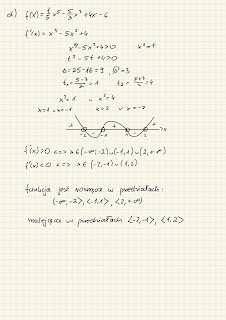 d) f(x) = 1/5 x⁵ - 5/3 x³ + 4x - 6
f'(x) = x⁴ - 5x² + 4
x⁴ - 5x² + 4 > 0 x² = t
t² - 5t + 4 > 0
Δ = 25 - 16 = 9, √Δ = 3
t₁ = (5-3)/2 = 1 t₂ = (5+3)/2 = 4
x² = 1 ∨ x² = 4
x = 1 ∨ x = -1 x = 2 ∨ x = -2
+ - + - +
-2 -1 1 2 x
f'(x) > 0 <=> x ∈ (-∞; -2) ∪ (-1, 1) ∪ (2, +∞)
f'(x) < 0 <=> x ∈ (-2, -1) ∪ (1, 2)
funkcja jest rosnąca w przedziałach:
(-∞; -2>, <-1, 1>, <2, +∞)
malejąca w przedziałach <-2, -1>, <1, 2>